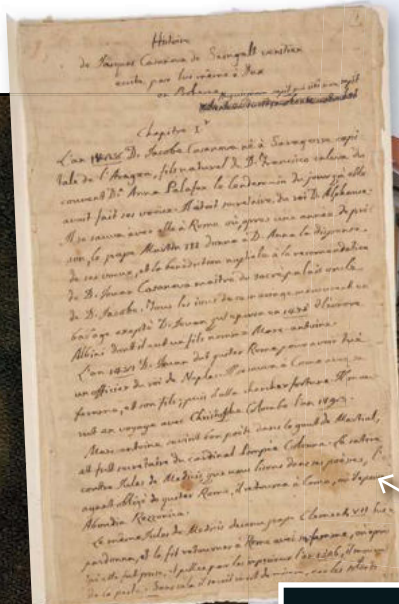 Histoire
de Jacques Casanova de Seingalt venitien
ecrite par lui meme à Dux
en Boheme
Chapitre I
L'an D. Jacobe Casanova né à Saragosse capi
tale de l'Aragon, fils naturel de D. Francisco enleva du
couvent D. Anna Palafox le lendemain du jour qu'elle
avoit fait ses vœux. Il étoit secretaire du roi D. Alphonse.
Il se sauva avec elle à Rome où après une année de pri
son, le pape Martin III donna à D. Anna la dispense
de ses vœux, et la benediction nuptiale à la recomandation
de D. Jouan Casanova maitre du sacré palais oncle
de D. Jacobe. Tous les issus de ce mariage moururent en
bas age excepté D. Jouan qui epousa en 1475 Eleonore
Albini dont il eut un fils nommé Marc-antoine.
L'an 1481 D. Jouan dut quiter Rome pour avoir tué
un officier du roi de Naples. Il se sauva à Como avec sa
femme, et son fils; puis il alla chercher fortune. Il mou
rut en voyage avec Christophe Colombo l'an 1493.
Marc-antoine devint bon poète dans le gout de Martial,
et fut secretaire du cardinal Pompée Colonna. La satire
contre Jules de Medicis, que nous lisons dans ses poesies, l'
ayant obligé de quiter Rome, il retourna à Como, où il epousa
Abondia Rezzonica.
Le même Jules de Medicis devenu pape Clement VII lui
pardonna, et le fit retourner à Rome avec sa femme, où après
qu'elle fut prise, et pillée par les imperiaux l'an 1526, il mourut
de la peste. Sans cela il seroit mort de misere, car les soldats